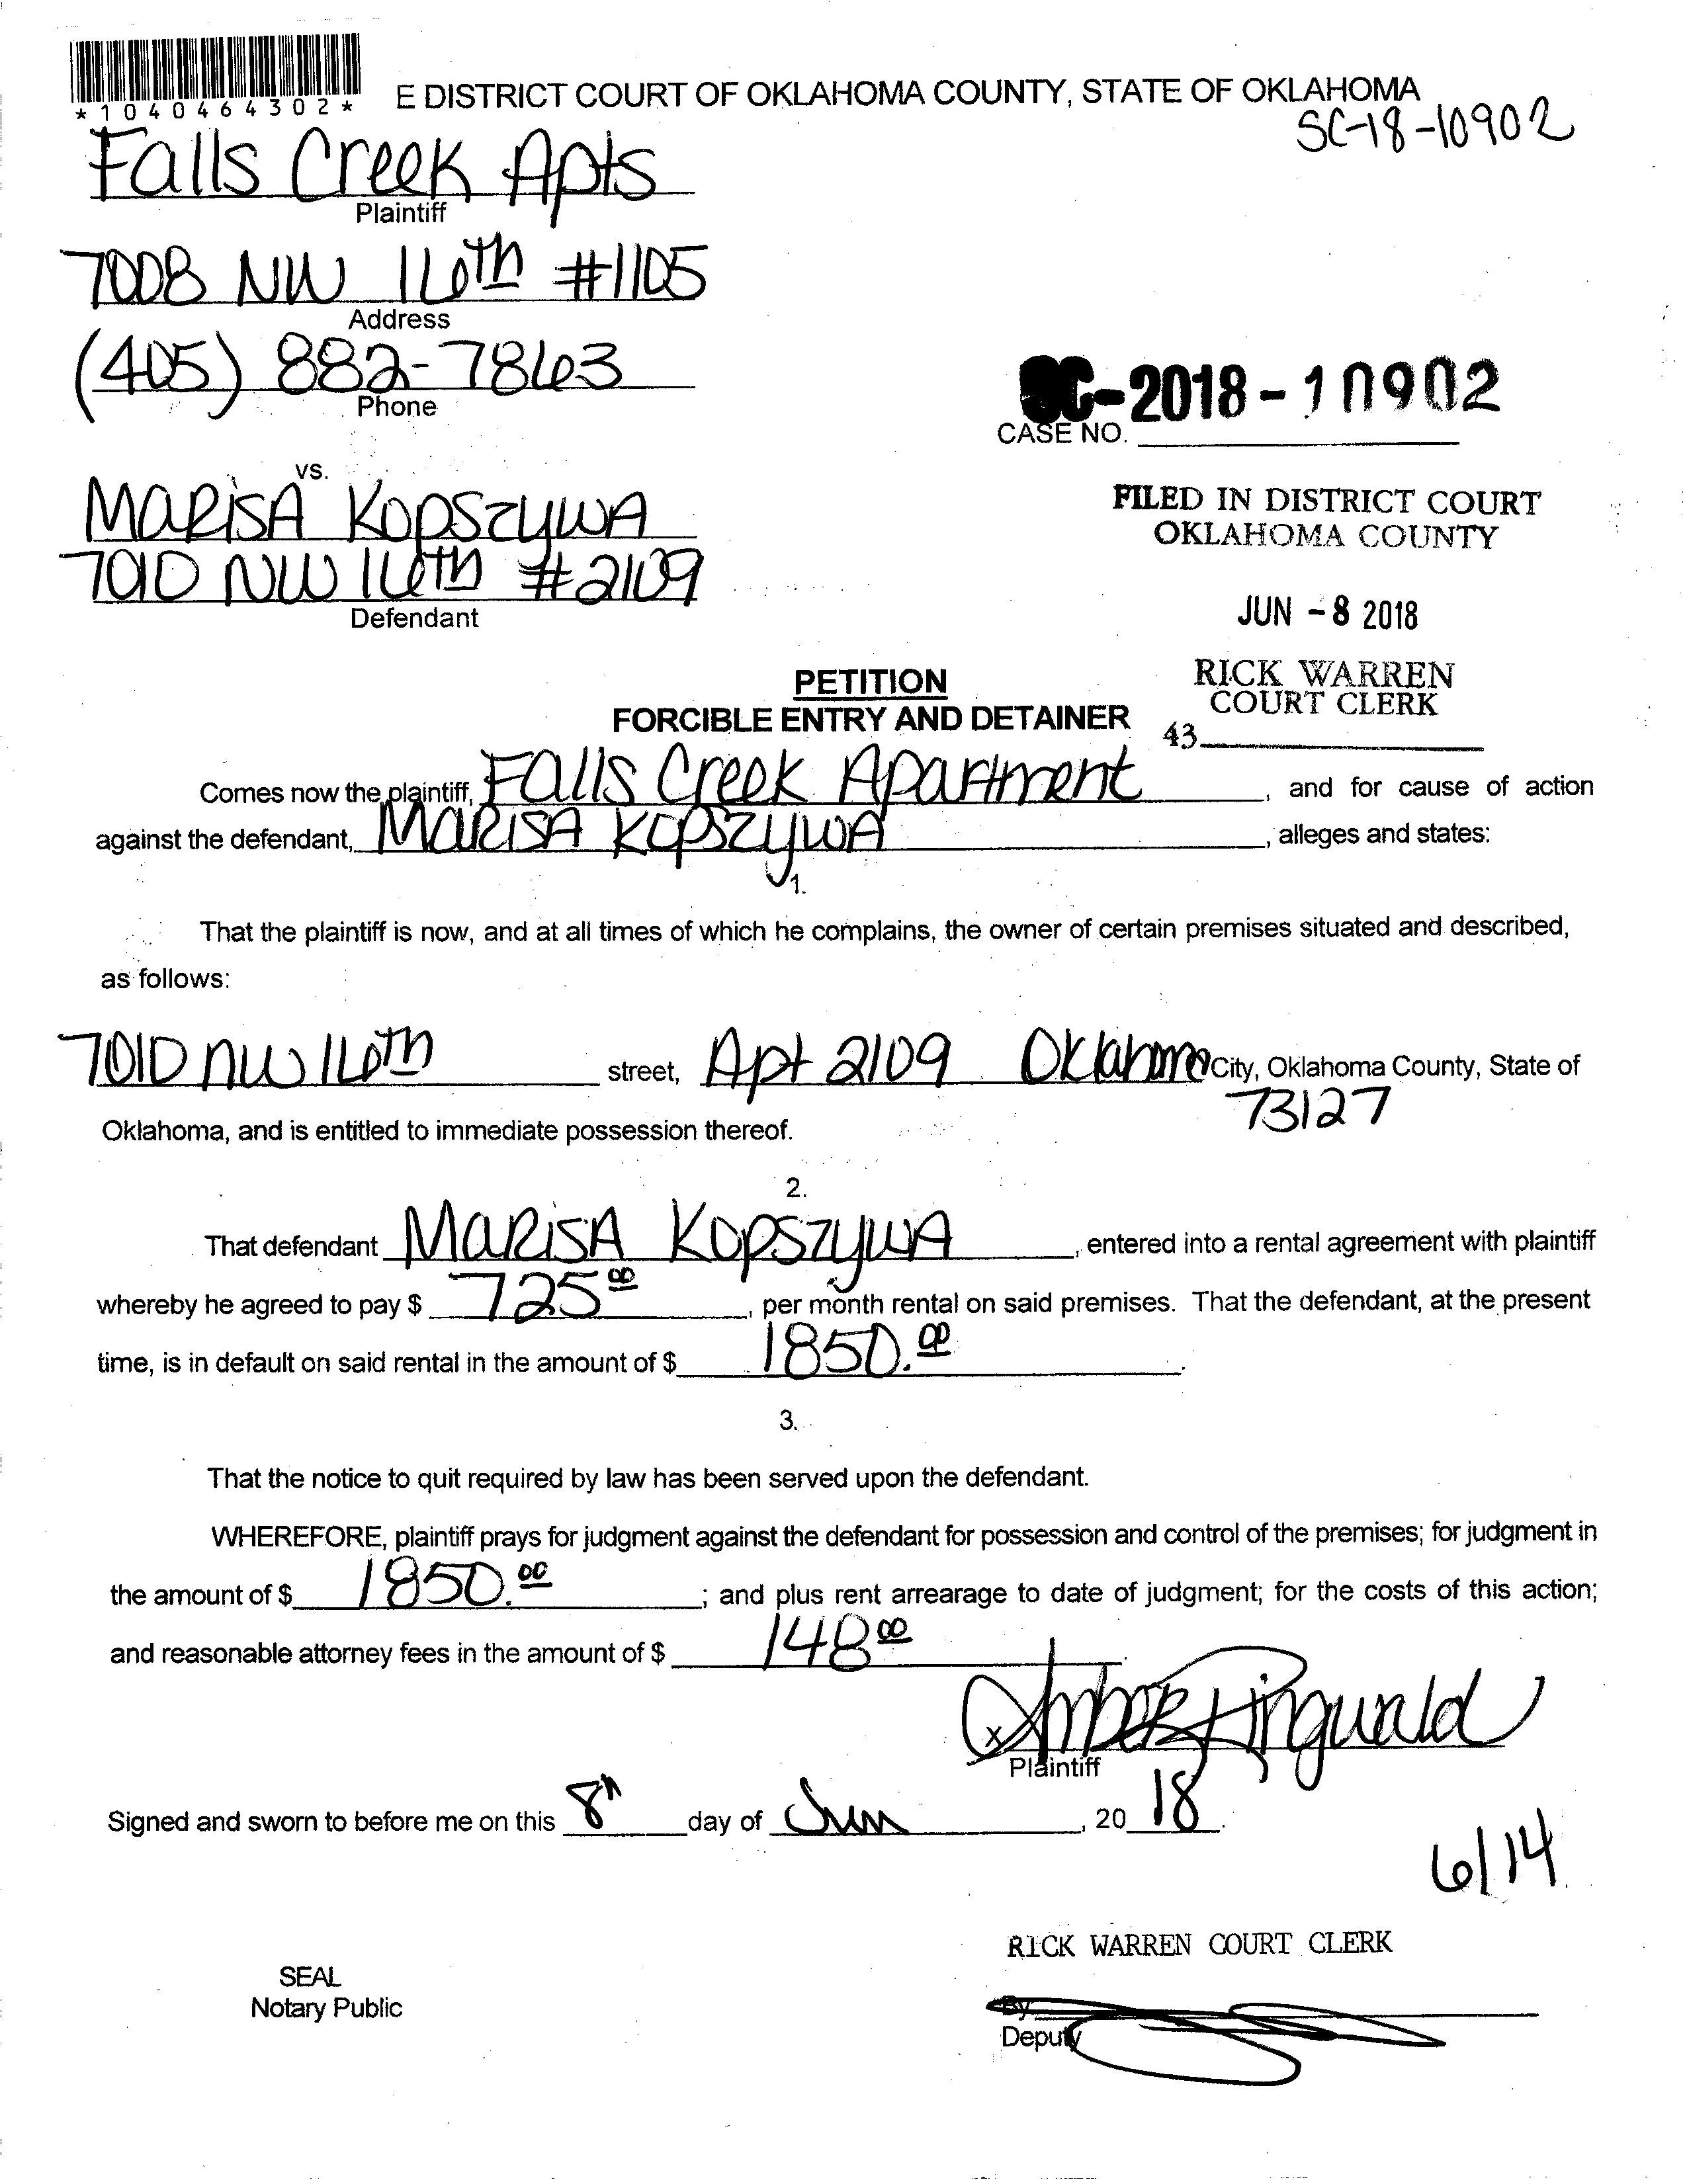 *1040464302*
E DISTRICT COURT OF OKLAHOMA COUNTY, STATE OF OKLAHOMA
SC-18-10902
Falls Creek Apts
Plaintiff
7008 NW 16th #1105
Address
(405) 882-7863
Phone
SC-2018-10902
CASE NO.
vs.
MARISA KOPSZYWA
7010 NW 16th #2109
Defendant
FILED IN DISTRICT COURT
OKLAHOMA COUNTY
JUN -8 2018
RICK WARREN
COURT CLERK
43
PETITION
FORCIBLE ENTRY AND DETAINER
Comes now the plaintiff, Falls Creek Apartment, and for cause of action
against the defendant, MARISA KOPSZYWA, alleges and states:
1.
That the plaintiff is now, and at all times of which he complains, the owner of certain premises situated and described,
as follows:
7010 NW 16th street, Apt 2109 Oklahoma City, Oklahoma County, State of
73127
Oklahoma, and is entitled to immediate possession thereof.
2.
That defendant MARISA KOPSZYWA, entered into a rental agreement with plaintiff
whereby he agreed to pay $ 725 00, per month rental on said premises. That the defendant, at the present
time, is in default on said rental in the amount of $ 1850.00.
3.
That the notice to quit required by law has been served upon the defendant.
WHEREFORE, plaintiff prays for judgment against the defendant for possession and control of the premises; for judgment in
the amount of $ 1850.00; and plus rent arrearage to date of judgment; for the costs of this action;
and reasonable attorney fees in the amount of $ 148 00.
x Amber Ringwald
Plaintiff
Signed and sworn to before me on this 8th day of Jun, 20 18.
6/14
RICK WARREN COURT CLERK
SEAL
Notary Public
By
Deputy